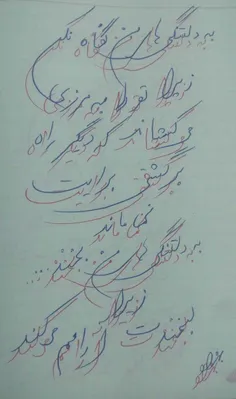 به دلتنگی های من نگاه نکن
زیرا تو را به مرزی
می کشاند که دیگر راه
برگشتی برایت
نمی ماند
به دلتنگی های من بخند....
زیرا
لبخندت آرامم می کند